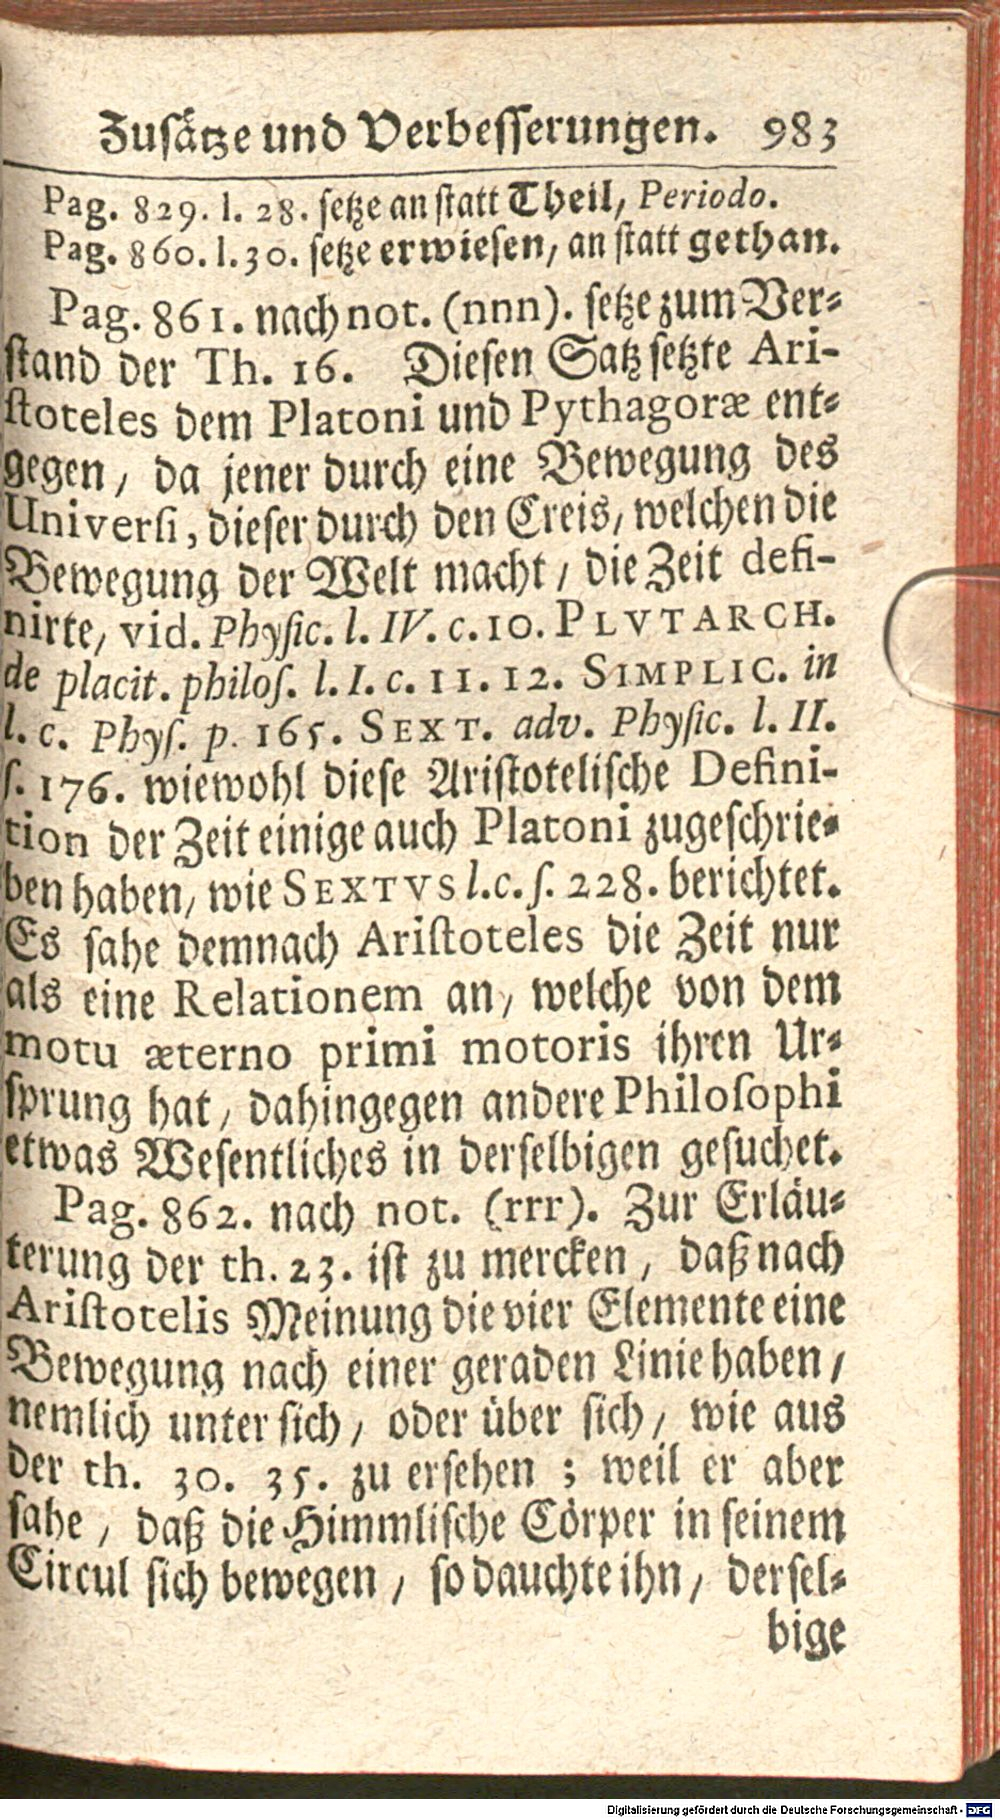 Zusätze und Verbesserungen. 983
Pag. 829. l. 28. setze an statt Theil, Periodo.
Pag. 860. l. 30. setze erwiesen, an statt gethan.
Pag. 861. nach not. (nnn). setze zum Ver-
stand der Th. 16. Diesen Satz setzte Ari-
stoteles dem Platoni und Pythagoræ ent-
gegen, da jener durch eine Bewegung des
Universi, dieser durch den Creis, welchen die
Bewegung der Welt macht, die Zeit defi-
nirte, vid. Physic. l. IV. c. 10. PLVTARCH.
de placit. philos. l. I. c. 11. 12. SIMPLIC. in
l. c. Phys. p. 165. SEXT. adv. Physic. l. II.
s. 176. wiewohl diese Aristotelische Defini-
tion der Zeit einige auch Platoni zugeschrie-
ben haben, wie SEXTVS l. c. s. 228. berichtet.
Es sahe demnach Aristoteles die Zeit nur
als eine Relationem an, welche von dem
motu æterno primi motoris ihren Ur-
sprung hat, dahingegen andere Philosophi
etwas Wesentliches in derselbigen gesuchet.
Pag. 862. nach not. (rrr). Zur Erläu-
terung der th. 23. ist zu mercken, daß nach
Aristotelis Meinung die vier Elemente eine
Bewegung nach einer geraden Linie haben,
nemlich unter sich, oder über sich, wie aus
der th. 30. 35. zu ersehen; weil er aber
sahe, daß die Himmlische Cörper in seinem
Circul sich bewegen, so dauchte ihn, dersel-
bige
Digitalisierung gefördert durch die Deutsche Forschungsgemeinschaft - DFG